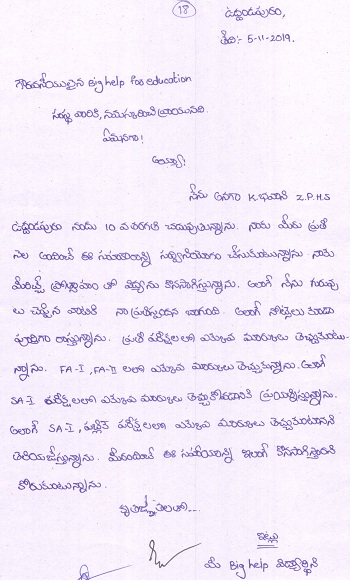 18
ఉద్దండపురం,
తేది:- 5-11-2019.
గౌరవనీయులైన Big help for education
సంస్థ వారికి, నమస్కరించి వ్రాయునది.
ఏమనగా!
అయ్యా!
నేను అనగా K.భవాని Z.P.H.S
ఉద్దండపురం నందు 10 వ తరగతి చదువుతున్నాను. నాకు మీరు ప్రతి
నెల అందించే ఈ సహాయాన్ని సద్వినియోగం చేసుకుంటున్నాను. నాకు
మీరిచ్చే ప్రోత్సాహం తో విద్యను కొనసాగిస్తున్నాను. అలాగే నేను గురువు
లు చెప్పిన వాటికి నా ప్రతిస్పందన బాగుంది. అలాగే నోట్సులు కూడా
పూర్తిగా రాస్తున్నాను. ప్రతి పరీక్షలలో ఎక్కువ మార్కులు తెచ్చుకుంటు-
న్నాను. FA-I, FA-II లలో ఎక్కువ మార్కులు తెచ్చుకున్నాను. అలాగే
SA-I పరీక్షలలో ఎక్కువ మార్కులు తెచ్చుకోవడానికి ప్రయత్నిస్తున్నాను.
అలాగే SA-I, పబ్లిక్ పరీక్షలలో ఎక్కువ మార్కులు తెచ్చుకుంటానని
తెలియజేస్తున్నాను. మీరందించే ఈ సహాయాన్ని ఇలాగే కొనసాగిస్తారని
కోరుకుంటున్నాను.
కృతజ్ఞతలతో...
ఇట్లు
మీ Big help విద్యార్థిని